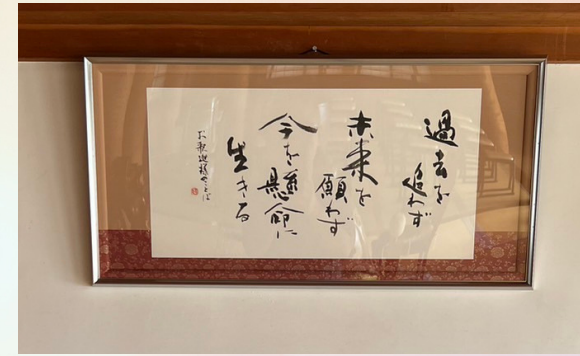 過去を
追わず
未来を
願わず
今を懸命に
生きる
お釈迦様のことば